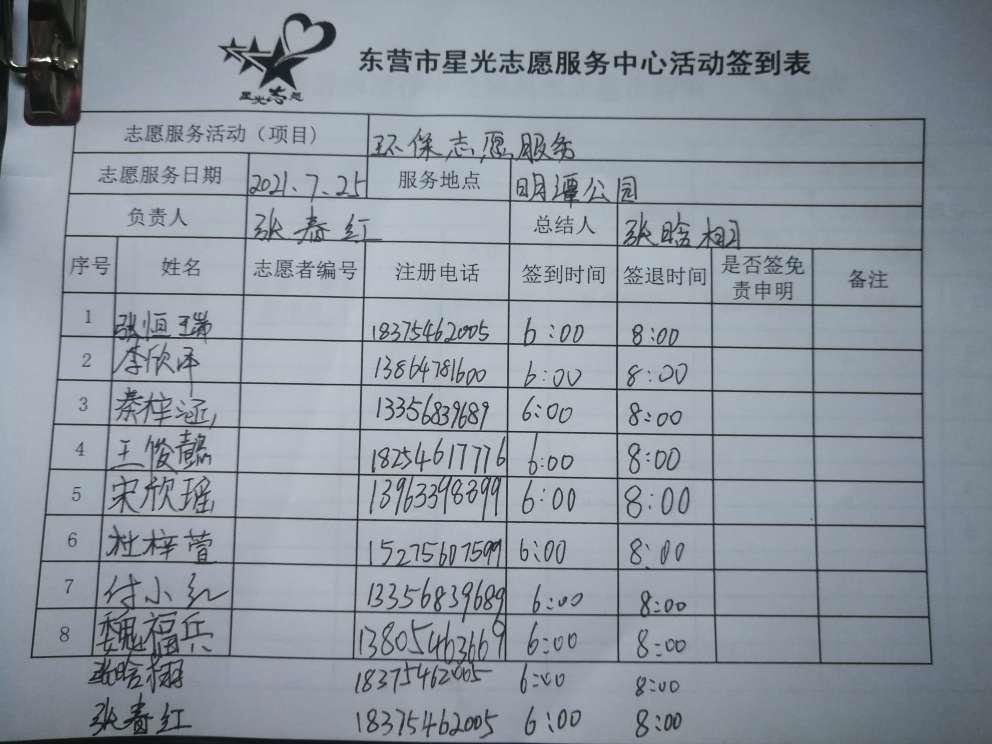 星光志愿
东营市星光志愿服务中心活动签到表
志愿服务活动（项目） 环保志愿服务
志愿服务日期 2021.7.25 服务地点 明潭公园
负责人 张春红 总结人 张晗栩
序号 姓名 志愿者编号 注册电话 签到时间 签退时间 是否签免责申明 备注
1 张恒瑞 18375462005 6:00 8:00
2 李欣泽 13864781600 6:00 8:00
3 秦梓涵 13356839689 6:00 8:00
4 王俊懿 18254617776 6:00 8:00
5 宋欣瑶 13963398899 6:00 8:00
6 杜梓萱 15275607599 6:00 8:00
7 付小红 13356839689 6:00 8:00
8 魏福兵 13805463669 6:00 8:00
张晗栩 18375462005 6:00 8:00
张春红 18375462005 6:00 8:00